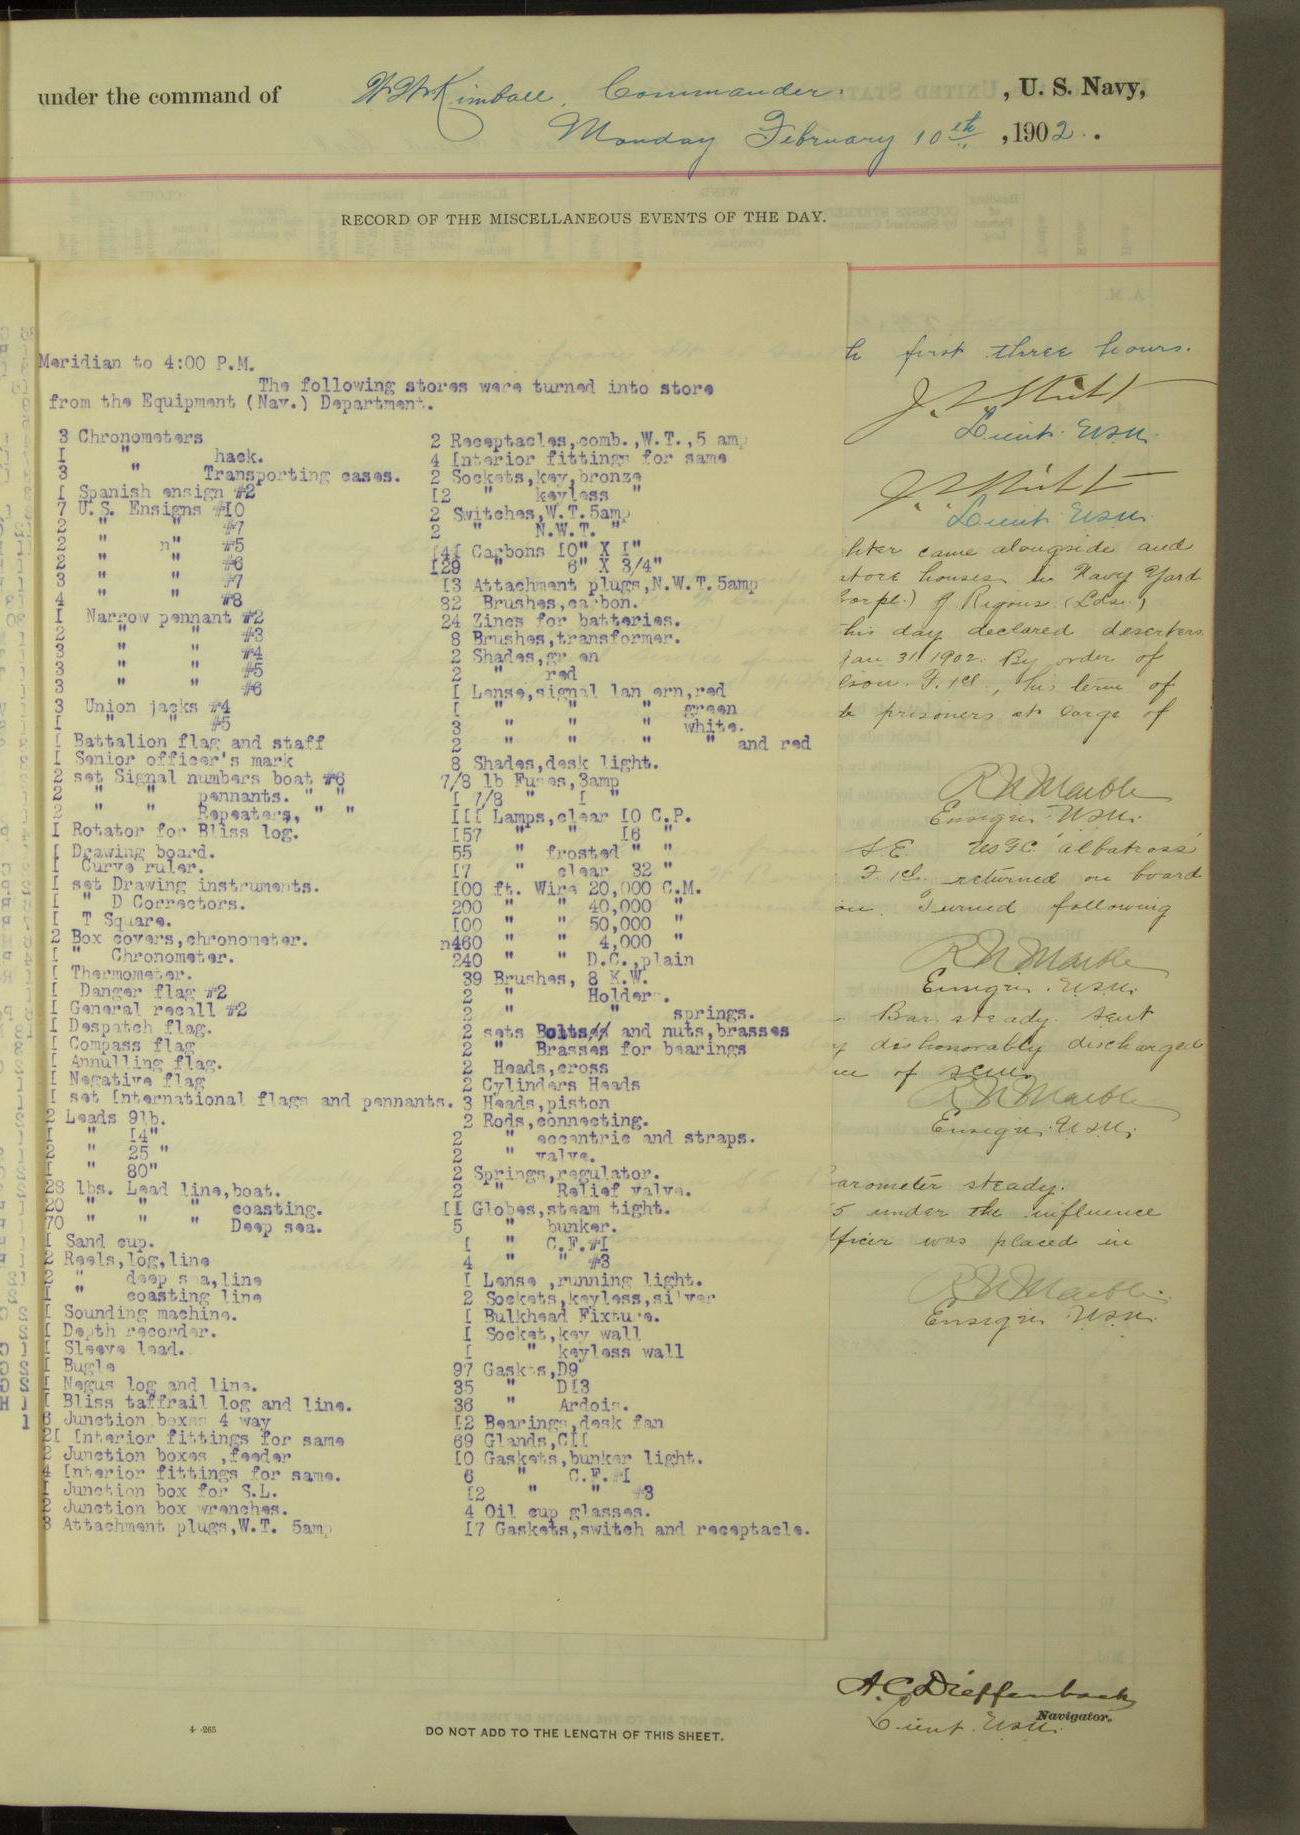 under the command of W W Kimball, Commander, U. S. Navy,
Monday February 10th, 1902.
RECORD OF THE MISCELLANEOUS EVENTS OF THE DAY.
Meridian to 4:00 P.M.
The following stores were turned into store
from the Equipment (Nav.) Department.
3 Chronometers
I " hack.
3 " Transporting cases.
I Spanish ensign #2
7 U.S. Ensigns #IO
2 " " #7
2 " n" #5
2 " " #6
3 " " #7
4 " " #8
I Narrow pennant #2
2 " " #3
3 " " #4
3 " " #5
3 " " #6
3 Union jacks #4
I " " #5
I Battalion flag and staff
I Senior officer's mark
2 set Signal numbers boat #6
2 " " pennants. " "
2 " " Repeaters, " "
I Rotator for Bliss log.
I Drawing board.
I Curve ruler.
I set Drawing instruments.
I " D Correctors.
I T Square.
2 Box covers,chronometer.
I " Chronometer.
I Thermometer.
I Danger flag #2
I General recall #2
I Despatch flag.
I Compass flag
I Annulling flag.
I Negative flag
I set International flags and pennants.
2 Leads 9lb.
I " I4"
2 " 25 "
I " 80"
28 lbs. Lead line,boat.
20 " " " coasting.
70 " " " Deep sea.
I Sand cup.
2 Reels,log,line
2 " deep sea,line
I " coasting line
I Sounding machine.
I Depth recorder.
I Sleeve lead.
I Bugle
I Negus log and line.
I Bliss taffrail log and line.
6 Junction boxes 4 way
2I Interior fittings for same
2 Junction boxes ,feeder
4 Interior fittings for same.
I Junction box for S.L.
2 Junction box wrenches.
3 Attachment plugs,W.T. 5amp
2 Receptacles,comb.,W.T.,5 amp
4 Interior fittings for same
2 Sockets,key,bronze
I2 " keyless "
2 Switches,W.T.5amp
2 " N.W.T. "
I4I Carbons IO" X I"
I29 " 6" X 3/4"
I3 Attachment plugs,N.W.T.5amp
82 Brushes,carbon.
24 Zincs for batteries.
8 Brushes,transformer.
2 Shades,gr en
2 " red
I Lense,signal lan ern,red
I " " " green
3 " " " white.
2 " " " " and red
8 Shades,desk light.
7/8 lb Fuses,3amp
I 7/8 " I "
III Lamps,clear IO C.P.
I57 " " I6 "
55 " frosted " "
I7 " clear 32 "
I00 ft. Wire 20,000 C.M.
200 " " 40,000 "
I00 " " 50,000 "
n460 " " 4,000 "
240 " " D.C.,plain
39 Brushes, 8 K.W.
2 " Holders.
2 " " springs.
2 sets Bolts// and nuts,brasses
2 " Brasses for bearings
2 Heads,cross
2 Cylinders Heads
3 Heads,piston
2 Rods,connecting.
2 " eccentric and straps.
2 " valve.
2 Springs,regulator.
2 " Relief valve.
II Globes,steam tight.
5 " bunker.
I " C.F.#I
4 " " #3
I Lense ,running light.
2 Sockets,keyless,silver
I Bulkhead Fixture.
I Socket,key wall
I " keyless wall
97 Gaskets,D9
35 " DI3
36 " Ardois.
I2 Bearings,desk fan
69 Glands,CII
IO Gaskets,bunker light.
6 " C.F.#I
I2 " " #3
4 Oil cup glasses.
I7 Gaskets,switch and receptacle.
h first three hours.
Lieut. USN.
Lieut. USN.
hter came alongside and
store houses in Navy Yard
Corpl.) J Rigous (Lds.,
his day declared deserters
Jan. 31 1902. By order of
lson. F. 1cl., his term of
te prisoners at large of
R N Marble
Ensign USN.
S.E. USFC 'albatross'
F. 1cl. returned on board
on. Turned following
R N Marble
Ensign. USN.
Bar. steady. Sent
y dishonorably discharged
R N Marble
Ensign. USN.
arometer steady.
5 under the influence
fficer was placed in
R N Marble.
Ensign USN.
A. C. Dieffenbach
Lieut. USN. Navigator.
4--265
DO NOT ADD TO THE LENGTH OF THIS SHEET.